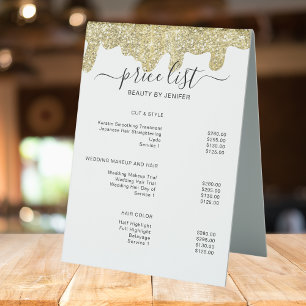 price list
BEAUTY BY JENIFER
CUT & STYLE
Keratin Smoothing Treatment $280.00
Japanese Hair Straightening $295.00
Updo $135.00
Service 1 $125.00
WEDDING MAKEUP AND HAIR
Wedding Makeup Trial $280.00
Wedding Hair Trial $295.00
Wedding Hair Day of $135.00
Service 1 $125.00
HAIR COLOR
Half Highlight $280.00
Full Highlight $295.00
Balayage $130.00
Service 1 $125.00